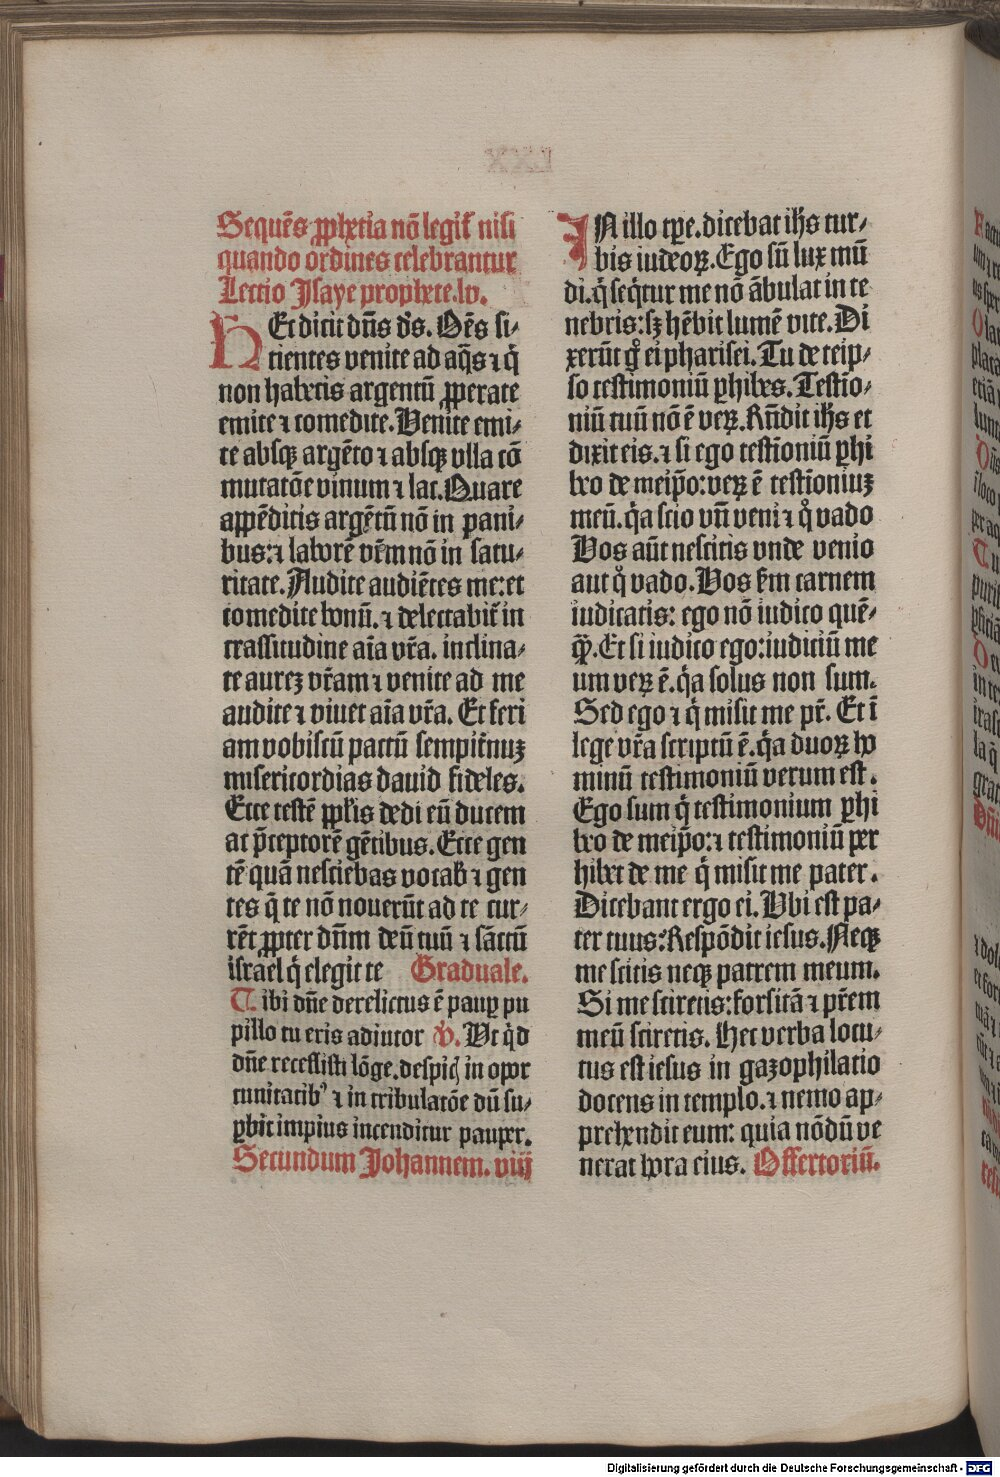 Sequē̄s ꝓphetia nō legit̄ nisi
quando ordines celebrantur
Lectio Isaye prophete.lv.
HEc dicit dn̄s ds̄. Om̄s si⸗
tientes venite ad aq̄s ⁊ q̇
non habetis argentū ꝓperate
emite ⁊ comedite. Venite emi⸗
te absqꝫ argēto ⁊ absqꝫ vlla cō
mutatōe vinum ⁊ lac. Quare
appēditis argētū nō in pani⸗
bus: ⁊ laborē vr̄m nō in satu⸗
ritate. Audite audiētes me: et
comedite bonū. ⁊ delectabit̄ in
crassitudine aīa vr̄a. inclina⸗
te aureꝫ vr̄am ⁊ venite ad me
audite ⁊ viuet aīa vr̄a. Et feri
am vobiscū pactū sempit̄nuꝫ
misericordias dauid fideles.
Ecce testē ppl̄is dedi eū ducem
ac p̄ceptorē gētibus. Ecce gen
tē quā nesciebas vocab̄ ⁊ gen
tes q̄ te nō nouerūt ad te cur⸗
rēt ꝓpter dn̄m deū tuū ⁊ sāctū
israel q̇ elegit te Graduale.
Tibi dn̄e derelictus ē pauꝑ pu
pillo tu eris adiutor ℣. Vt q̇d
dn̄e recessisti lōge. despic̄ in opor
tunitatibꝰ ⁊ in tribulatōe dū su⸗
ꝑbit impius incenditur pauper.
Secundum Johannem. viij
IN illo tꝑe. dicebat ih̄s tur⸗
bis iudeoꝝ. Ego sū lux mū
di. q̇ seq̇tur me nō ābulat in te
nebris: sꝫ hēbit lumē vite. Di
xerūt g̊ ei pharisei. Tu de teip⸗
so testimoniū ꝑhibes. Testio⸗
niū tuū nō ē veꝝ. Rn̄dit ih̄s et
dixit eis. ⁊ si ego testīoniū ꝑhi
beo de meip̄o: veꝝ ē testīoniuꝫ
meū. q̇a scio vn̄ veni ⁊ q̊ vado
Vos aūt nescitis vnde venio
aut q̊ vado. Vos ẜm carnem
iudicatis: ego nō iudico quē⸗
ꝙ̄. Et si iudico ego: iudiciū me
um veꝝ ē. q̇a solus non sum.
Sed ego ⁊ q̇ misit me pr̄. Et ī
lege vr̄a scriptū ē. q̇a duoꝝ ho
minū testimoniū verum est.
Ego sum q̇ testimonium ꝑhi
beo de meip̄o: ⁊ testimoniū per
hibet de me q̇ misit me pater.
Dicebant ergo ei. Vbi est pa⸗
ter tuus? Respōdit iesus. Neqꝫ
me scitis neqꝫ patrem meum.
Si me sciretis: forsitā ⁊ pr̄em
meū sciretis. Hec verba locu⸗
tus est iesus in gazophilatio
docens in templo. ⁊ nemo ap⸗
prehendit eum: quia nōdū ve
nerat hora eius. Offertoriū.
Digitalisierung gefördert durch die Deutsche Forschungsgemeinschaft - DFG